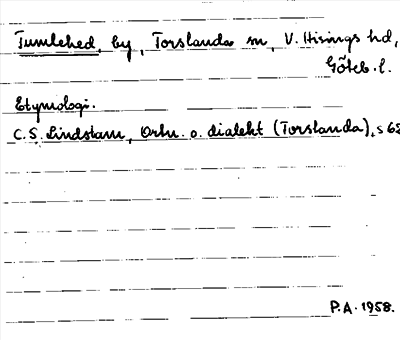 Tumlehed, by, Torslanda sn, V. Hisings hd,
Göteb. l.
Etymologi.
C. S. Lindstam, Ortn. o. dialekt (Torslanda), s 68
P.A. 1958.